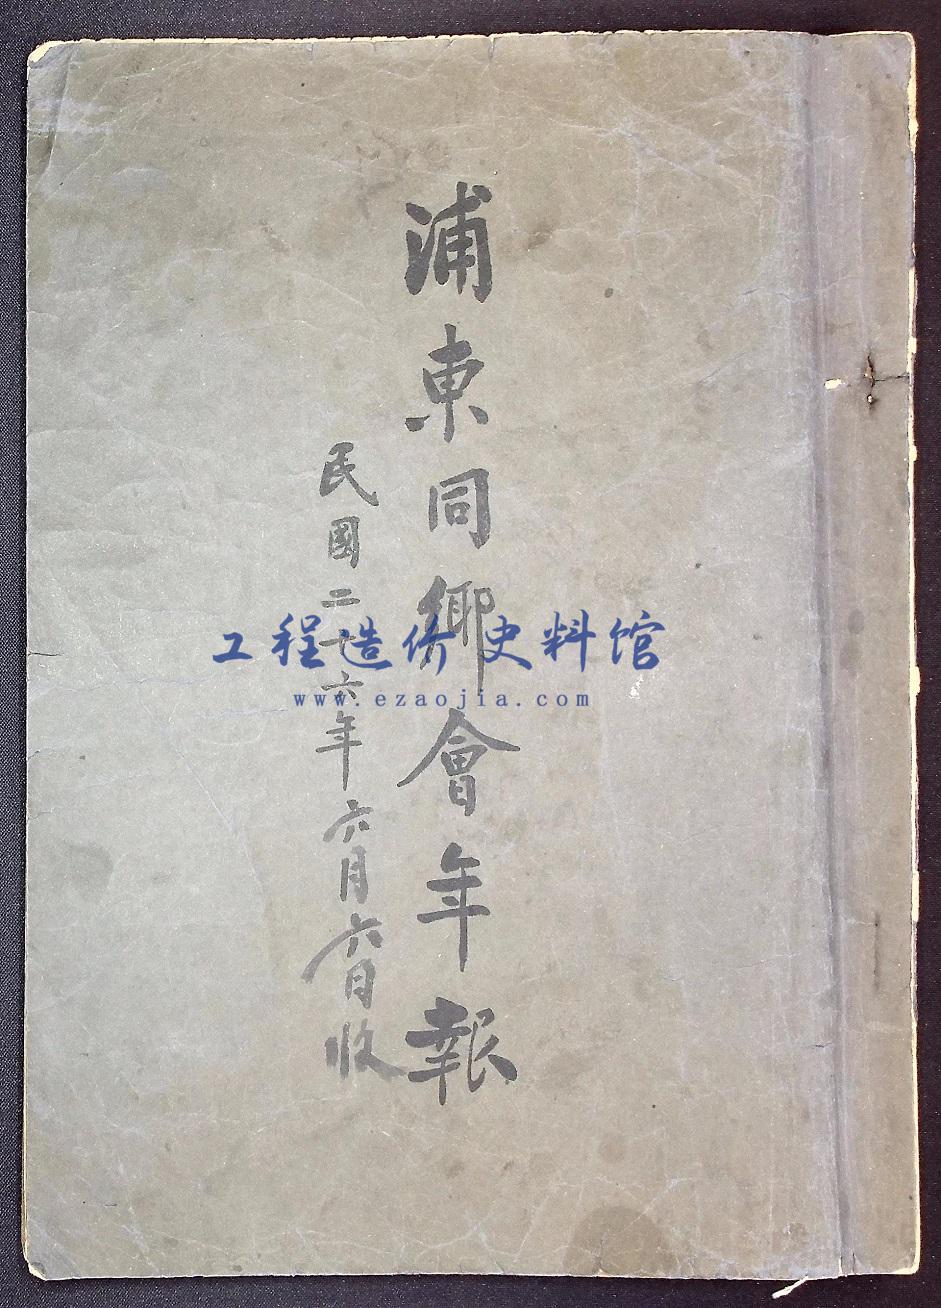 浦東同鄉會年報
民國二十六年六月六日收
工程造价史料馆
www.ezaojia.com